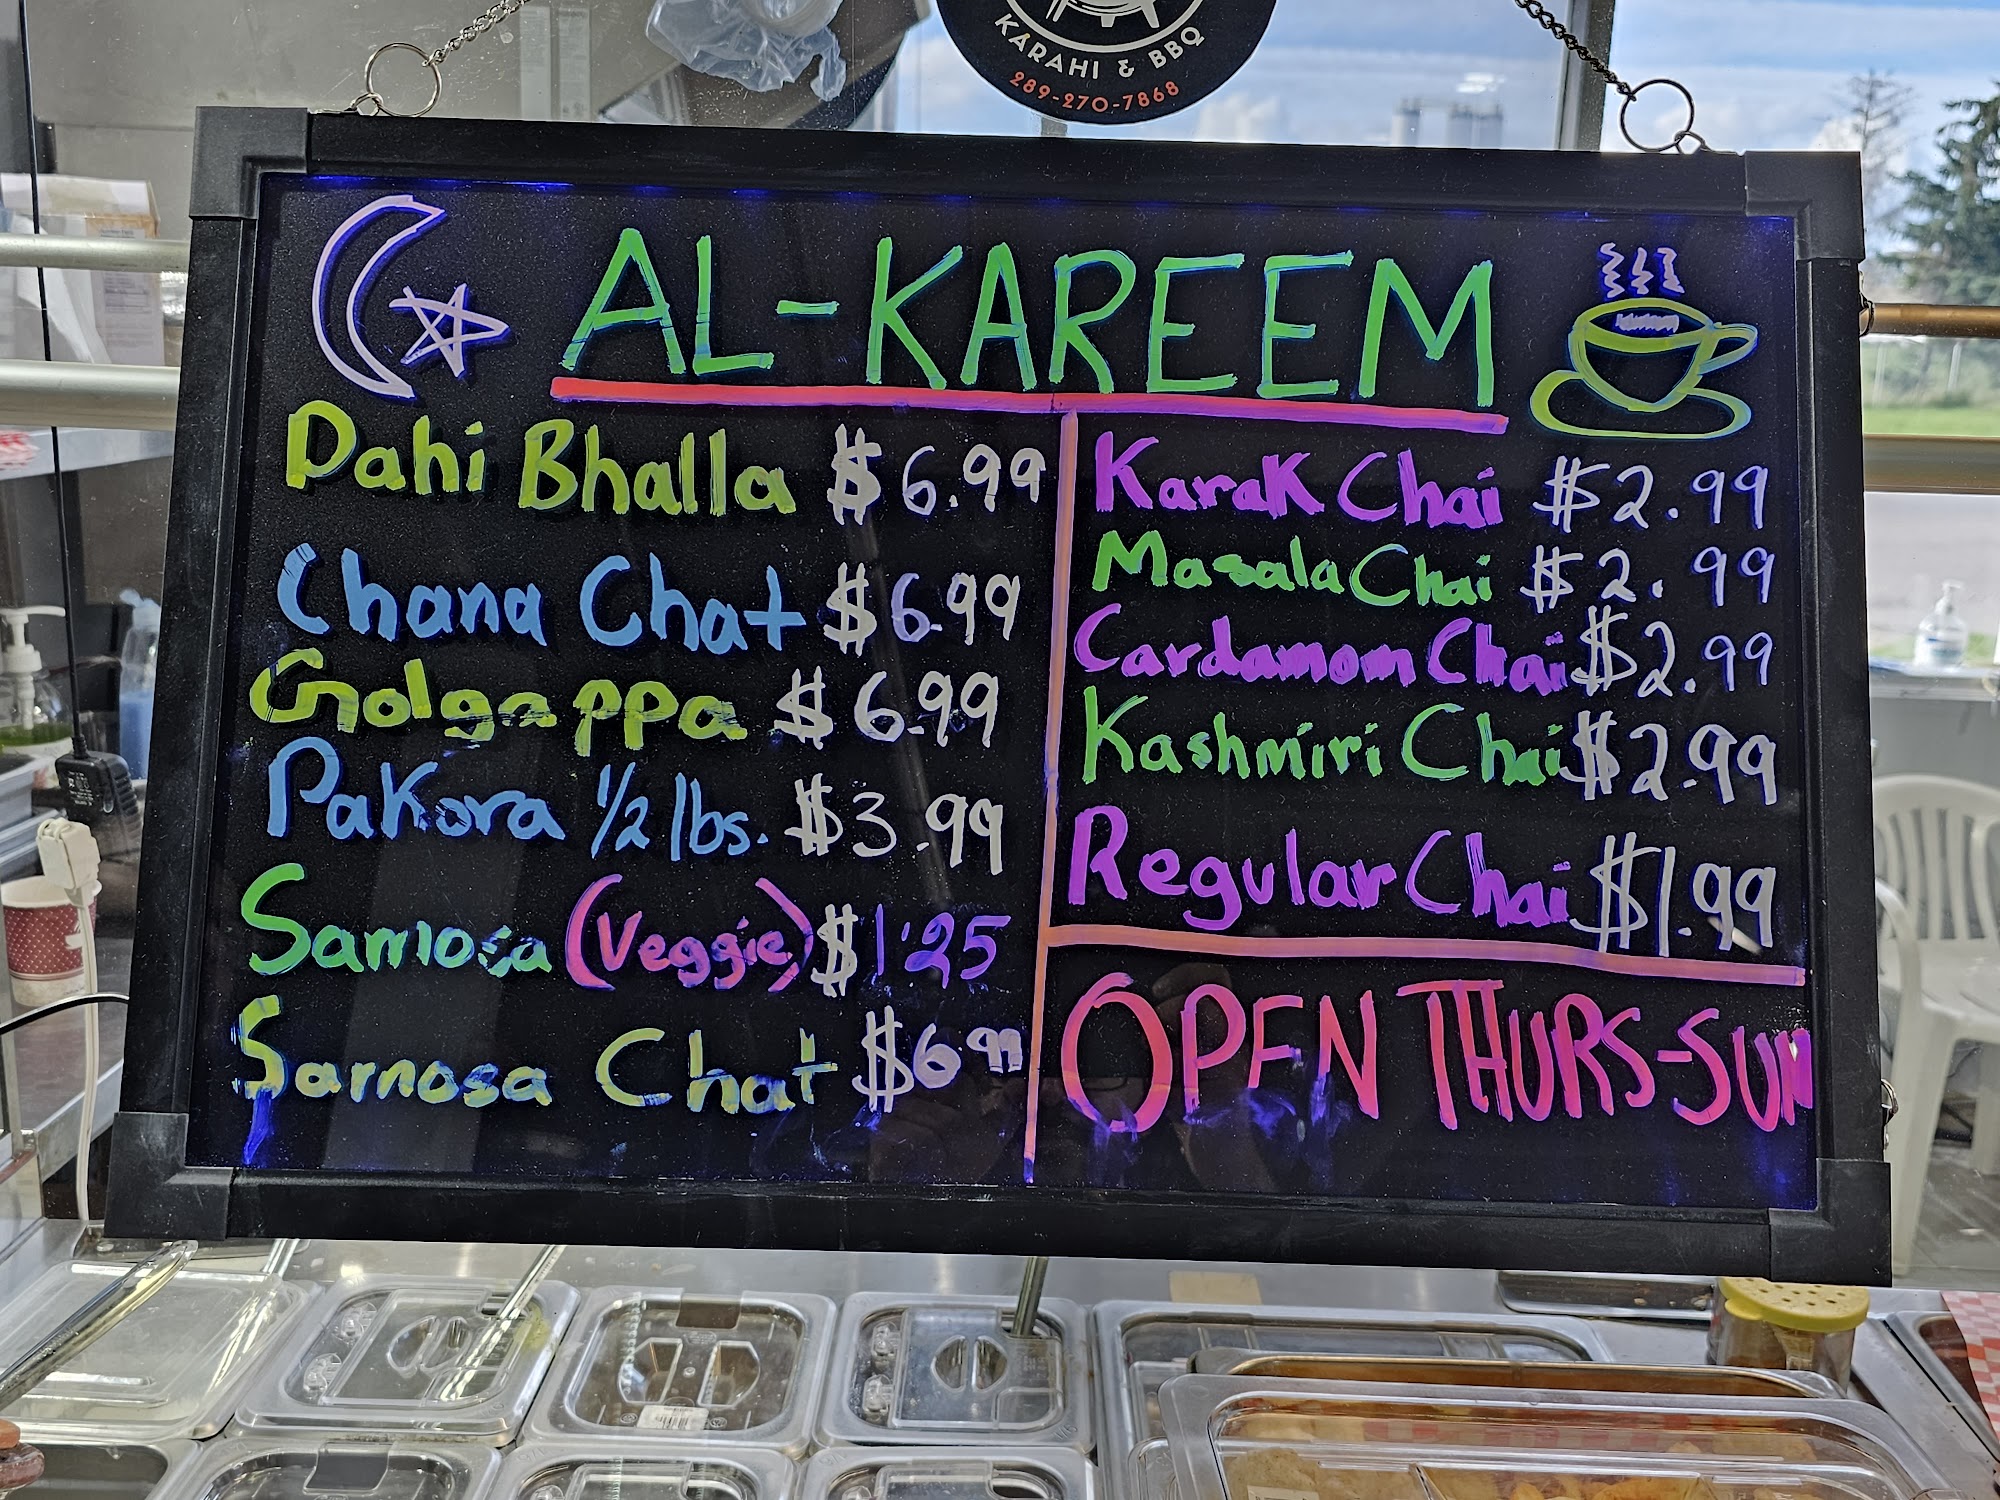 KARAHI & BBQ
289-270-7868
AL-KAREEM
Dahi Bhalla $6.99
Chana Chat $6.99
Golgappa $6.99
Pakora 1/2 lbs. $3.99
Samosa (Veggie) $1.25
Samosa Chat $6.99
Karak Chai $2.99
Masala Chai $2.99
Cardamom Chai $2.99
Kashmiri Chai $2.99
Regular Chai $1.99
OPEN THURS-SUN